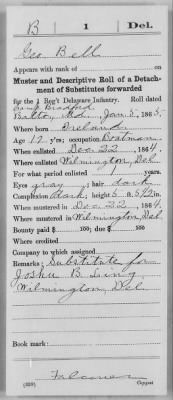 B | 1 | Del.
Geo Bell
Appears with rank of
Muster and Descriptive Roll of a Detachment
of Substitutes forwarded
for the 1 Reg't Delaware Infantry. Roll dated
Camp Bradford
Balto, Md. Jan 5, 1865.
Where born Ireland
Age years; occupation Boatman
When enlisted Dec 22, 1864.
Where enlisted Wilmington, Del
For what period enlisted 1 years.
Eyes gray; hair dark
Complexion dark; height 5 ft. in.
When mustered in Dec 22, 1864.
Where mustered in Wilmington, Del.
Bounty paid $ 100; due $ 100
Where credited
Company to which assigned
Remarks: Substitute for
Joshu B.
Wilmington, Del
Book mark:
(339)
Copyist.